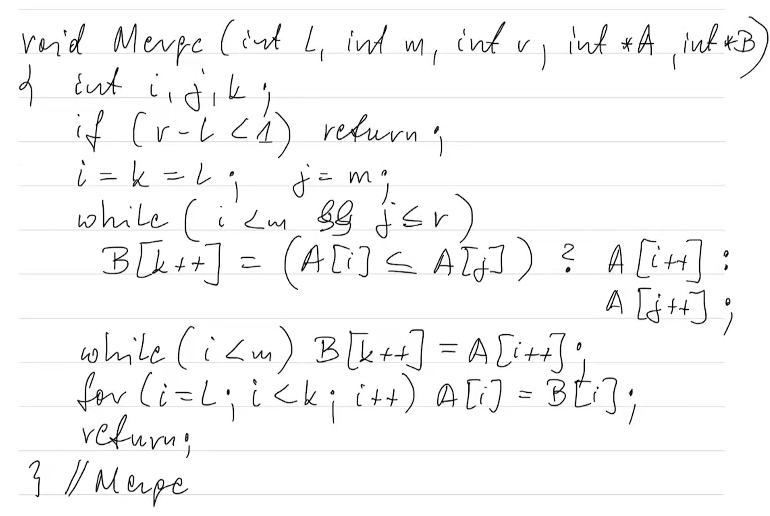 void Merge (int L, int m, int r, int *A, int *B)
{ int i, j, k;
if (r-L<1) return;
i = k = L; j = m;
while (i <m && j≤r)
B[k++] = (A[i] ≤ A[j]) ? A[i++] :
A[j++];
while (i<m) B[k++] = A[i++];
for (i=L; i<k; i++) A[i] = B[i];
return;
} // Merge